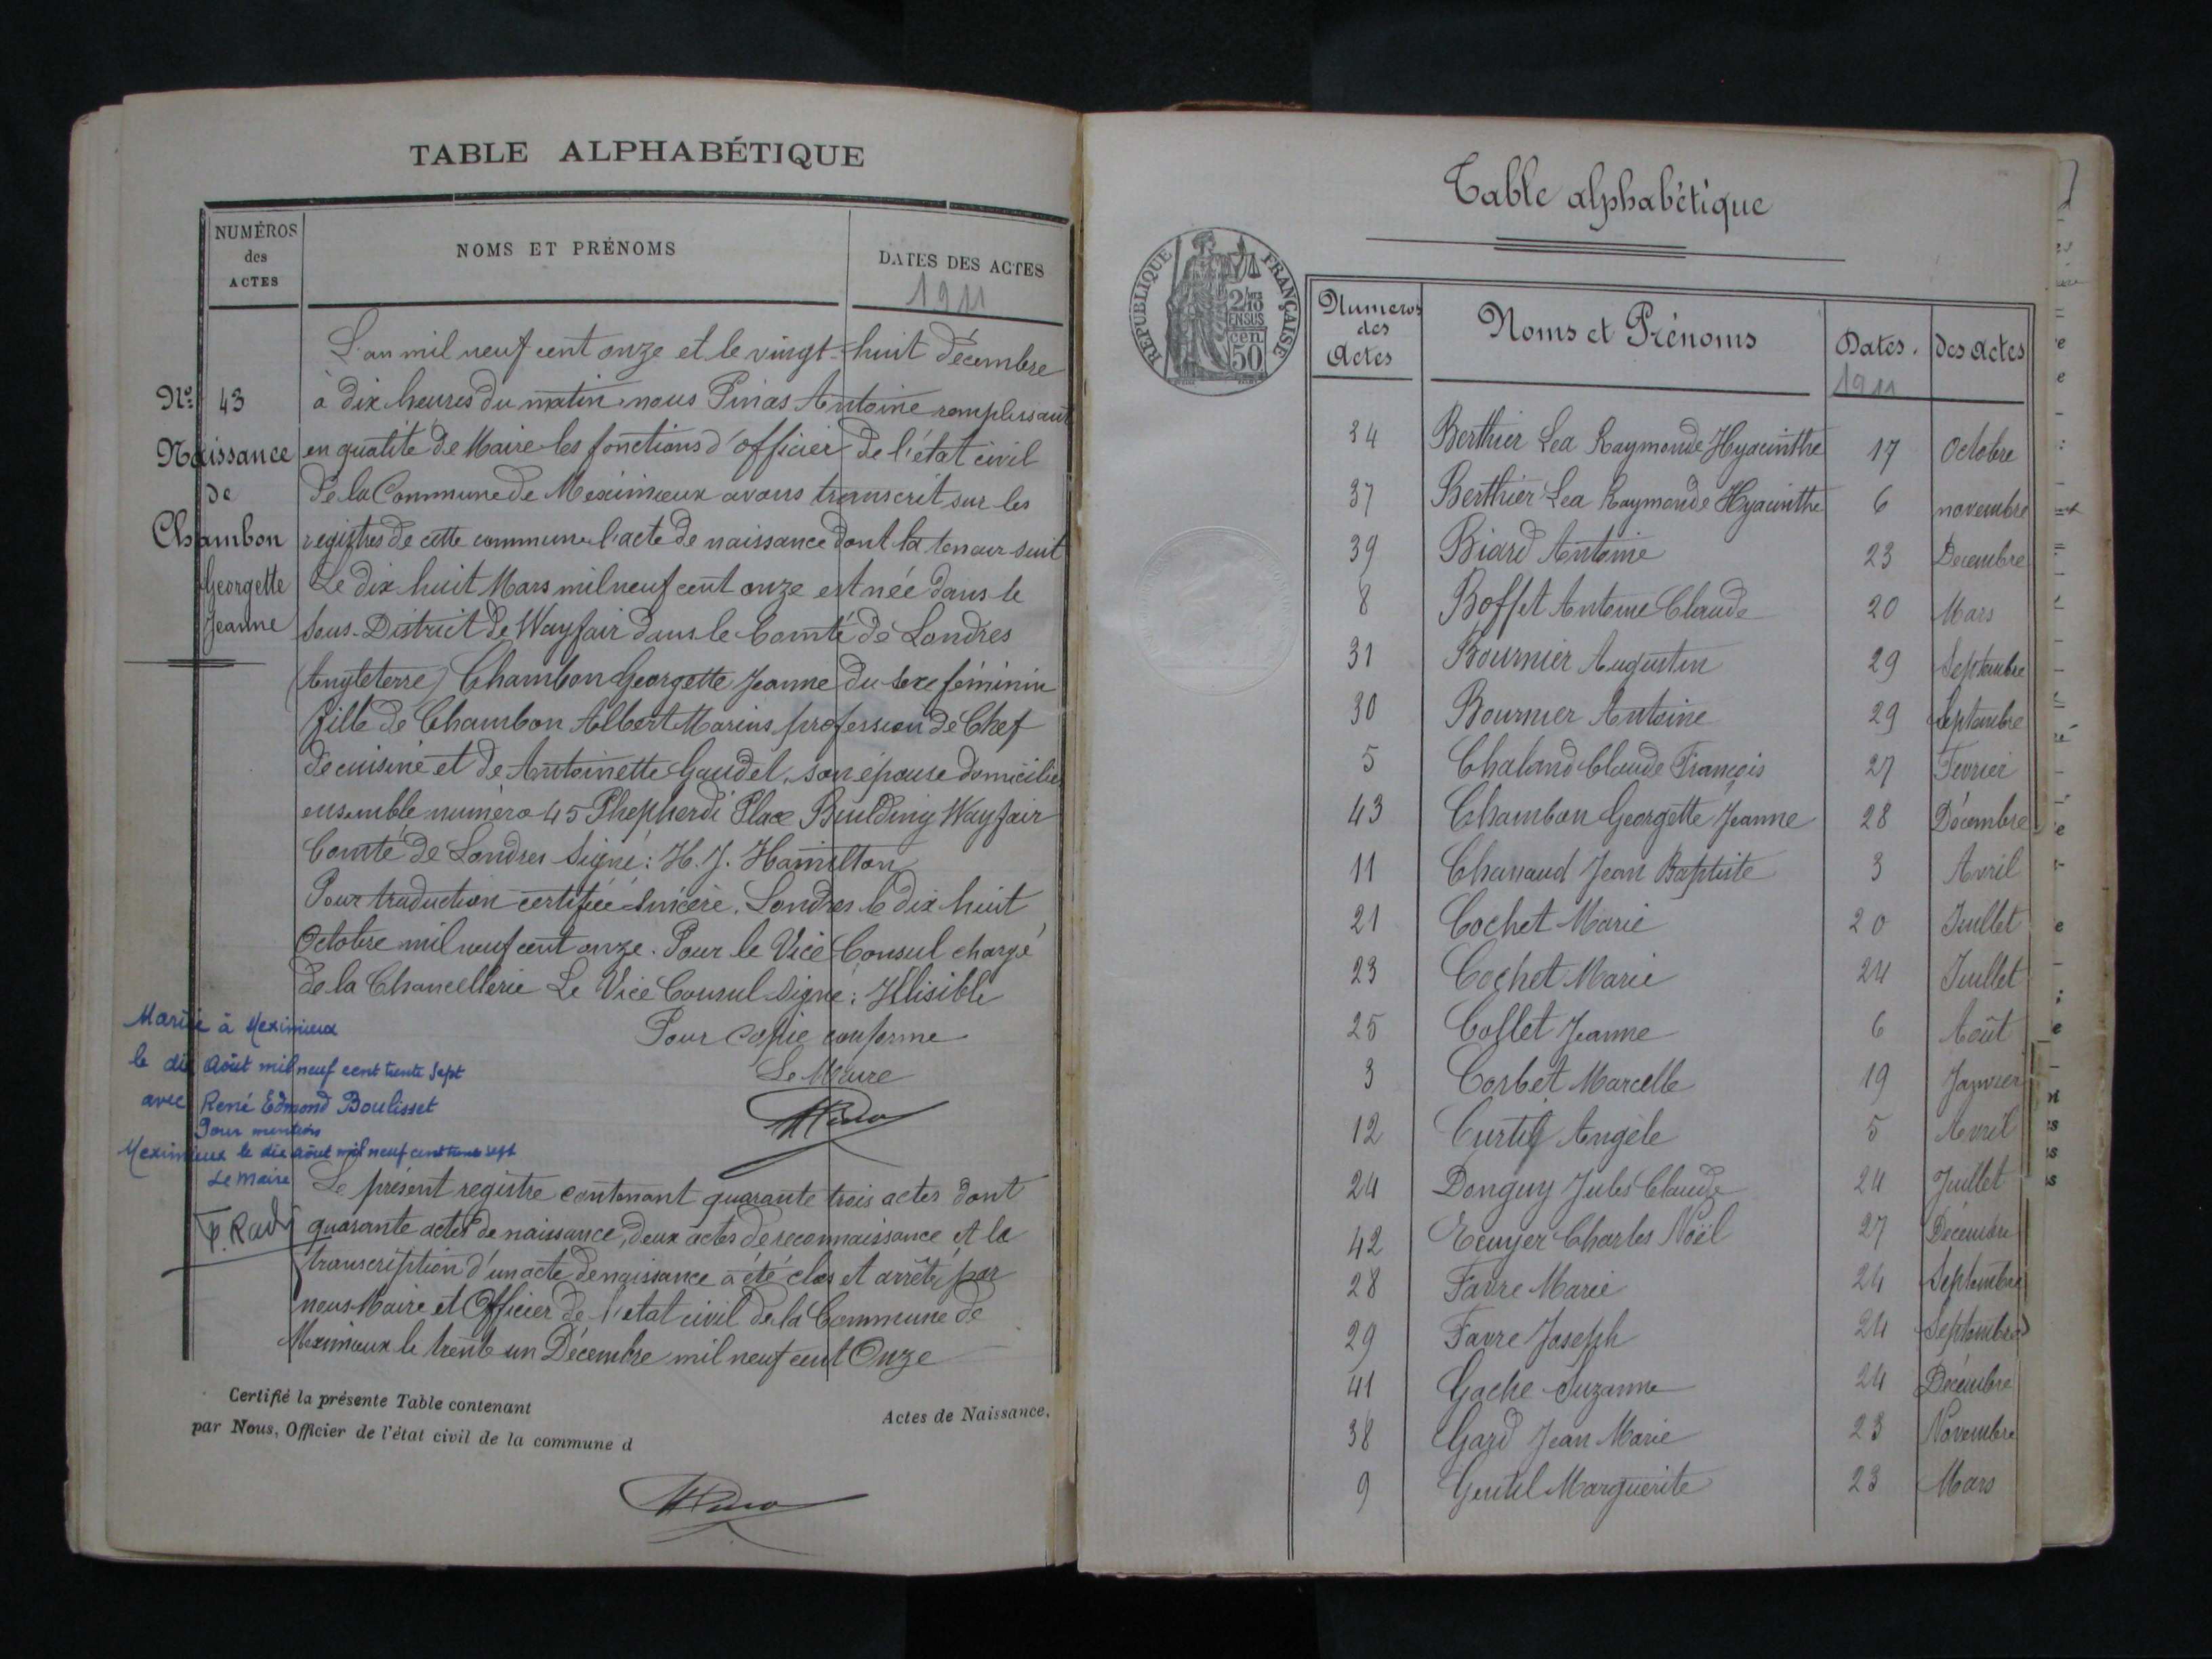 TABLE ALPHABÉTIQUE
NUMÉROS
des
ACTES
NOMS ET PRÉNOMS
DATES DES ACTES
1911
Nº 43
Naissance
de
Chambon
Georgette
Jeanne
L'an mil neuf cent onze et le vingt-huit décembre
à dix heures du matin nous Pinas Antoine remplissant
en qualité de Maire les fonctions d'officier de l'état civil
de la Commune de Meximieux avons transcrit sur les
registres de cette commune l'acte de naissance dont la teneur suit
Le dix huit Mars mil neuf cent onze est née dans le
Sous-District de Wayfair dans le Comté de Londres
(Angleterre) Chambon Georgette Jeanne du sexe féminin
fille de Chambon Albert Marius profession de Chef
de cuisine et de Antoinette Gaudet, son épouse domiciliés
ensemble numéro 45 Shepherdi Place Building Wayfair
Comté de Londres Signé: H. J. Hamilton
Pour traduction certifiée sincère. Londres le dix huit
Octobre mil neuf cent onze. Pour le Vice Consul chargé
de la Chancellerie Le Vice Consul signé: Illisible
Pour copie conforme
Le Maire
Mariée à Meximieux
le dix Août mil neuf cent trente sept
avec René Edmond Boulisset
Pour mention
Meximieux le dix août mil neuf cent trente sept
Le Maire
Le présent registre contenant quarante trois actes dont
quarante actes de naissance, deux actes de reconnaissance et la
transcription d'un acte de naissance a été clos et arrêté par
nous Maire et Officier de l'etat civil de la Commune de
Meximieux le trente un Décembre mil neuf cent Onze
Certifié la présente Table contenant
Actes de Naissance,
par Nous, Officier de l'état civil de la commune d
Table alphabétique
REPUBLIQUE FRANÇAISE
2/10
EN SUS
50 cen
Numeros des Actes
Noms et Prénoms
Dates. des Actes
1911
34 Berthier Lea Raymonde Hyacinthe 17 Octobre
37 Berthier Lea Raymonde Hyacinthe 6 novembre
39 Biard Antoine 23 Decembre
8 Boffet Antoine Claude 20 Mars
31 Bournier Augustin 29 Septembre
30 Bournier Antoine 29 Septembre
5 Chaland Claude François 27 Fevrier
43 Chambon Georgette Jeanne 28 Décembre
11 Chanaud Jean Baptiste 3 Avril
21 Cochet Marie 20 Juillet
23 Cochet Marie 24 Juillet
25 Collet Jeanne 6 Août
3 Corbet Marcelle 19 Janvier
12 Curtil Angèle 5 Avril
24 Donguy Jules Claude 24 Juillet
42 Ecuyer Charles Noël 27 Décembre
28 Favre Marie 24 Septembre
29 Favre Joseph 24 Septembre
41 Gache Suzanne 24 Décembre
38 Gard Jean Marie 23 Novembre
9 Gentil Marguerite 23 Mars